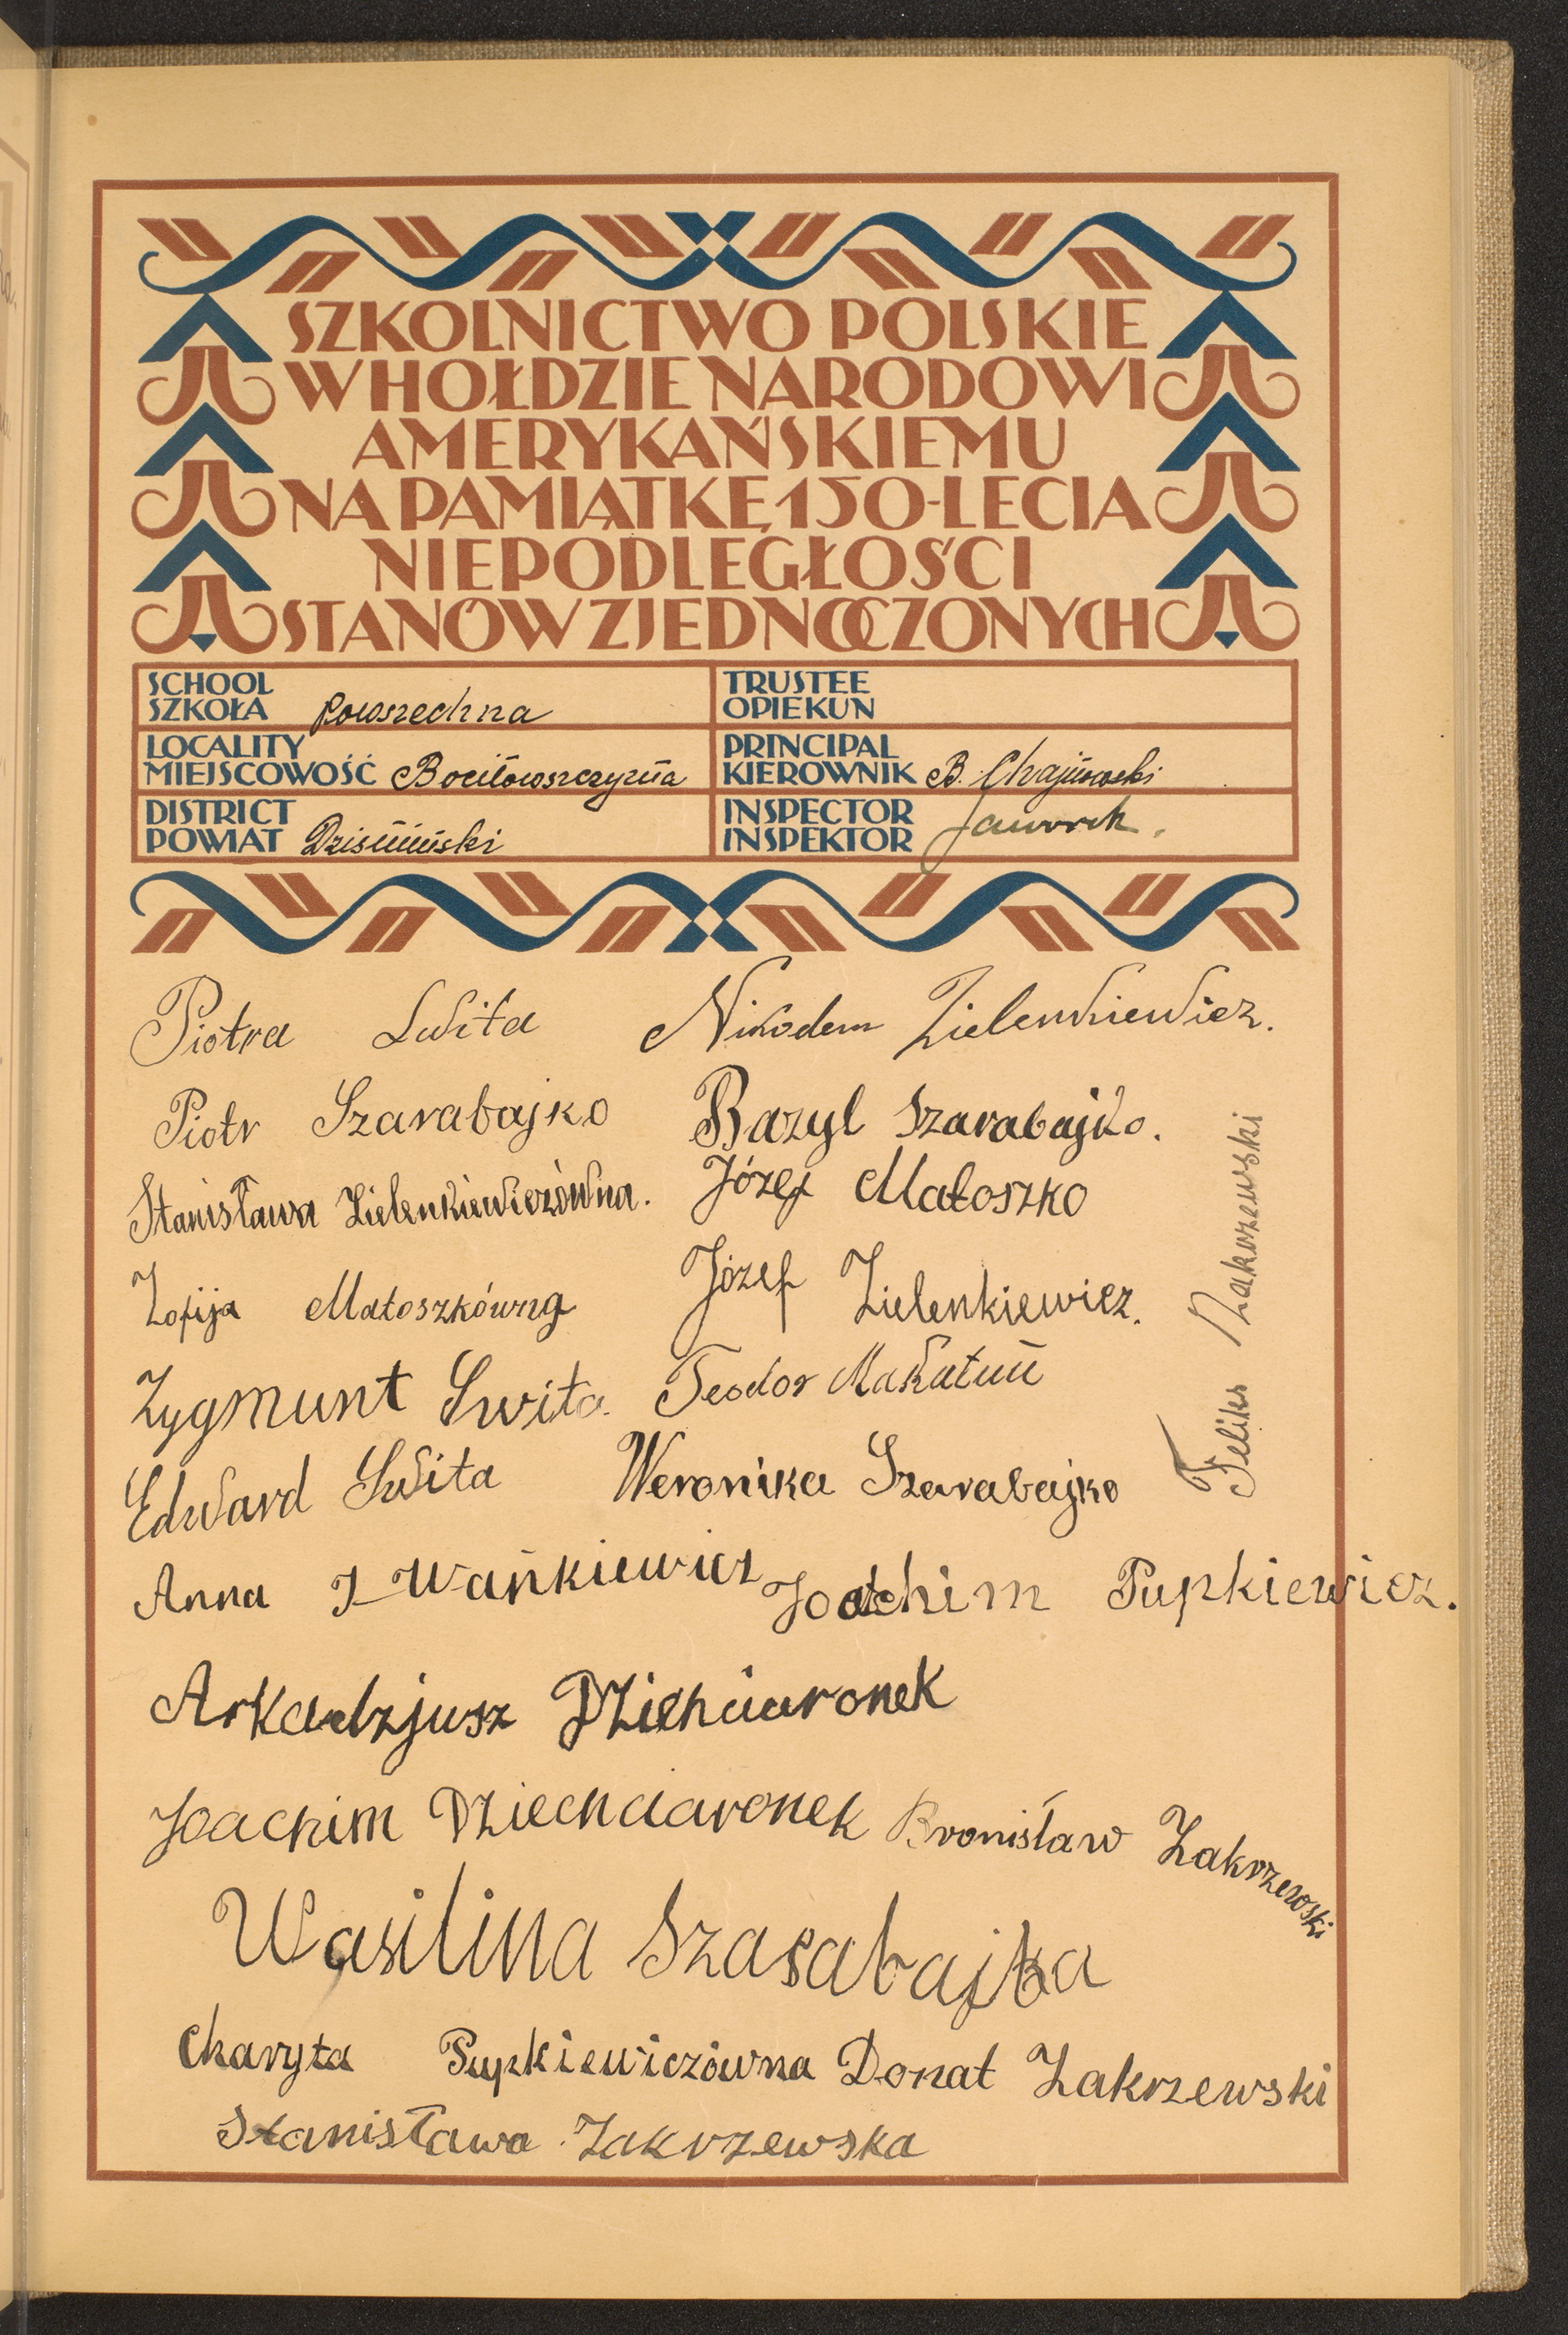 SZKOLNICTWO POLSKIE
W HOŁDZIE NARODOWI
AMERYKAŃSKIEMU
NA PAMIĄTKĘ 150-LECIA
NIEPODLEGŁOŚCI
STANÓW ZJEDNOCZONYCH
SCHOOL
SZKOŁA powszechna
TRUSTEE
OPIEKUN
LOCALITY
MIEJSCOWOŚĆ
PRINCIPAL
KIEROWNIK B.
DISTRICT
POWIAT Dziśnieński
INSPECTOR
INSPEKTOR Jaworek.
Piotra Swita Nikodem Zielenkiewicz.
Piotr Szarabajko Bazyl Szarabajko.
Stanisława Zielenkiewiczówna. Józef Matoszko
Zofija Matoszkówna Józef Zielenkiewicz.
Zygmunt Swita. Teodor Makatun
Edward Swita Weronika Szarabajko
Feliks Zakrzewski
Anna I Wańkiewicz Joachim Pupkiewicz.
Arkadzjusz Dziehciaronek
Joachim Dziechciaronek Bronisław Zakrzewski
Wasilina Szarabajka
Charyta Pupkiewiczówna Donat Zakrzewski
Stanisława Zakrzewska